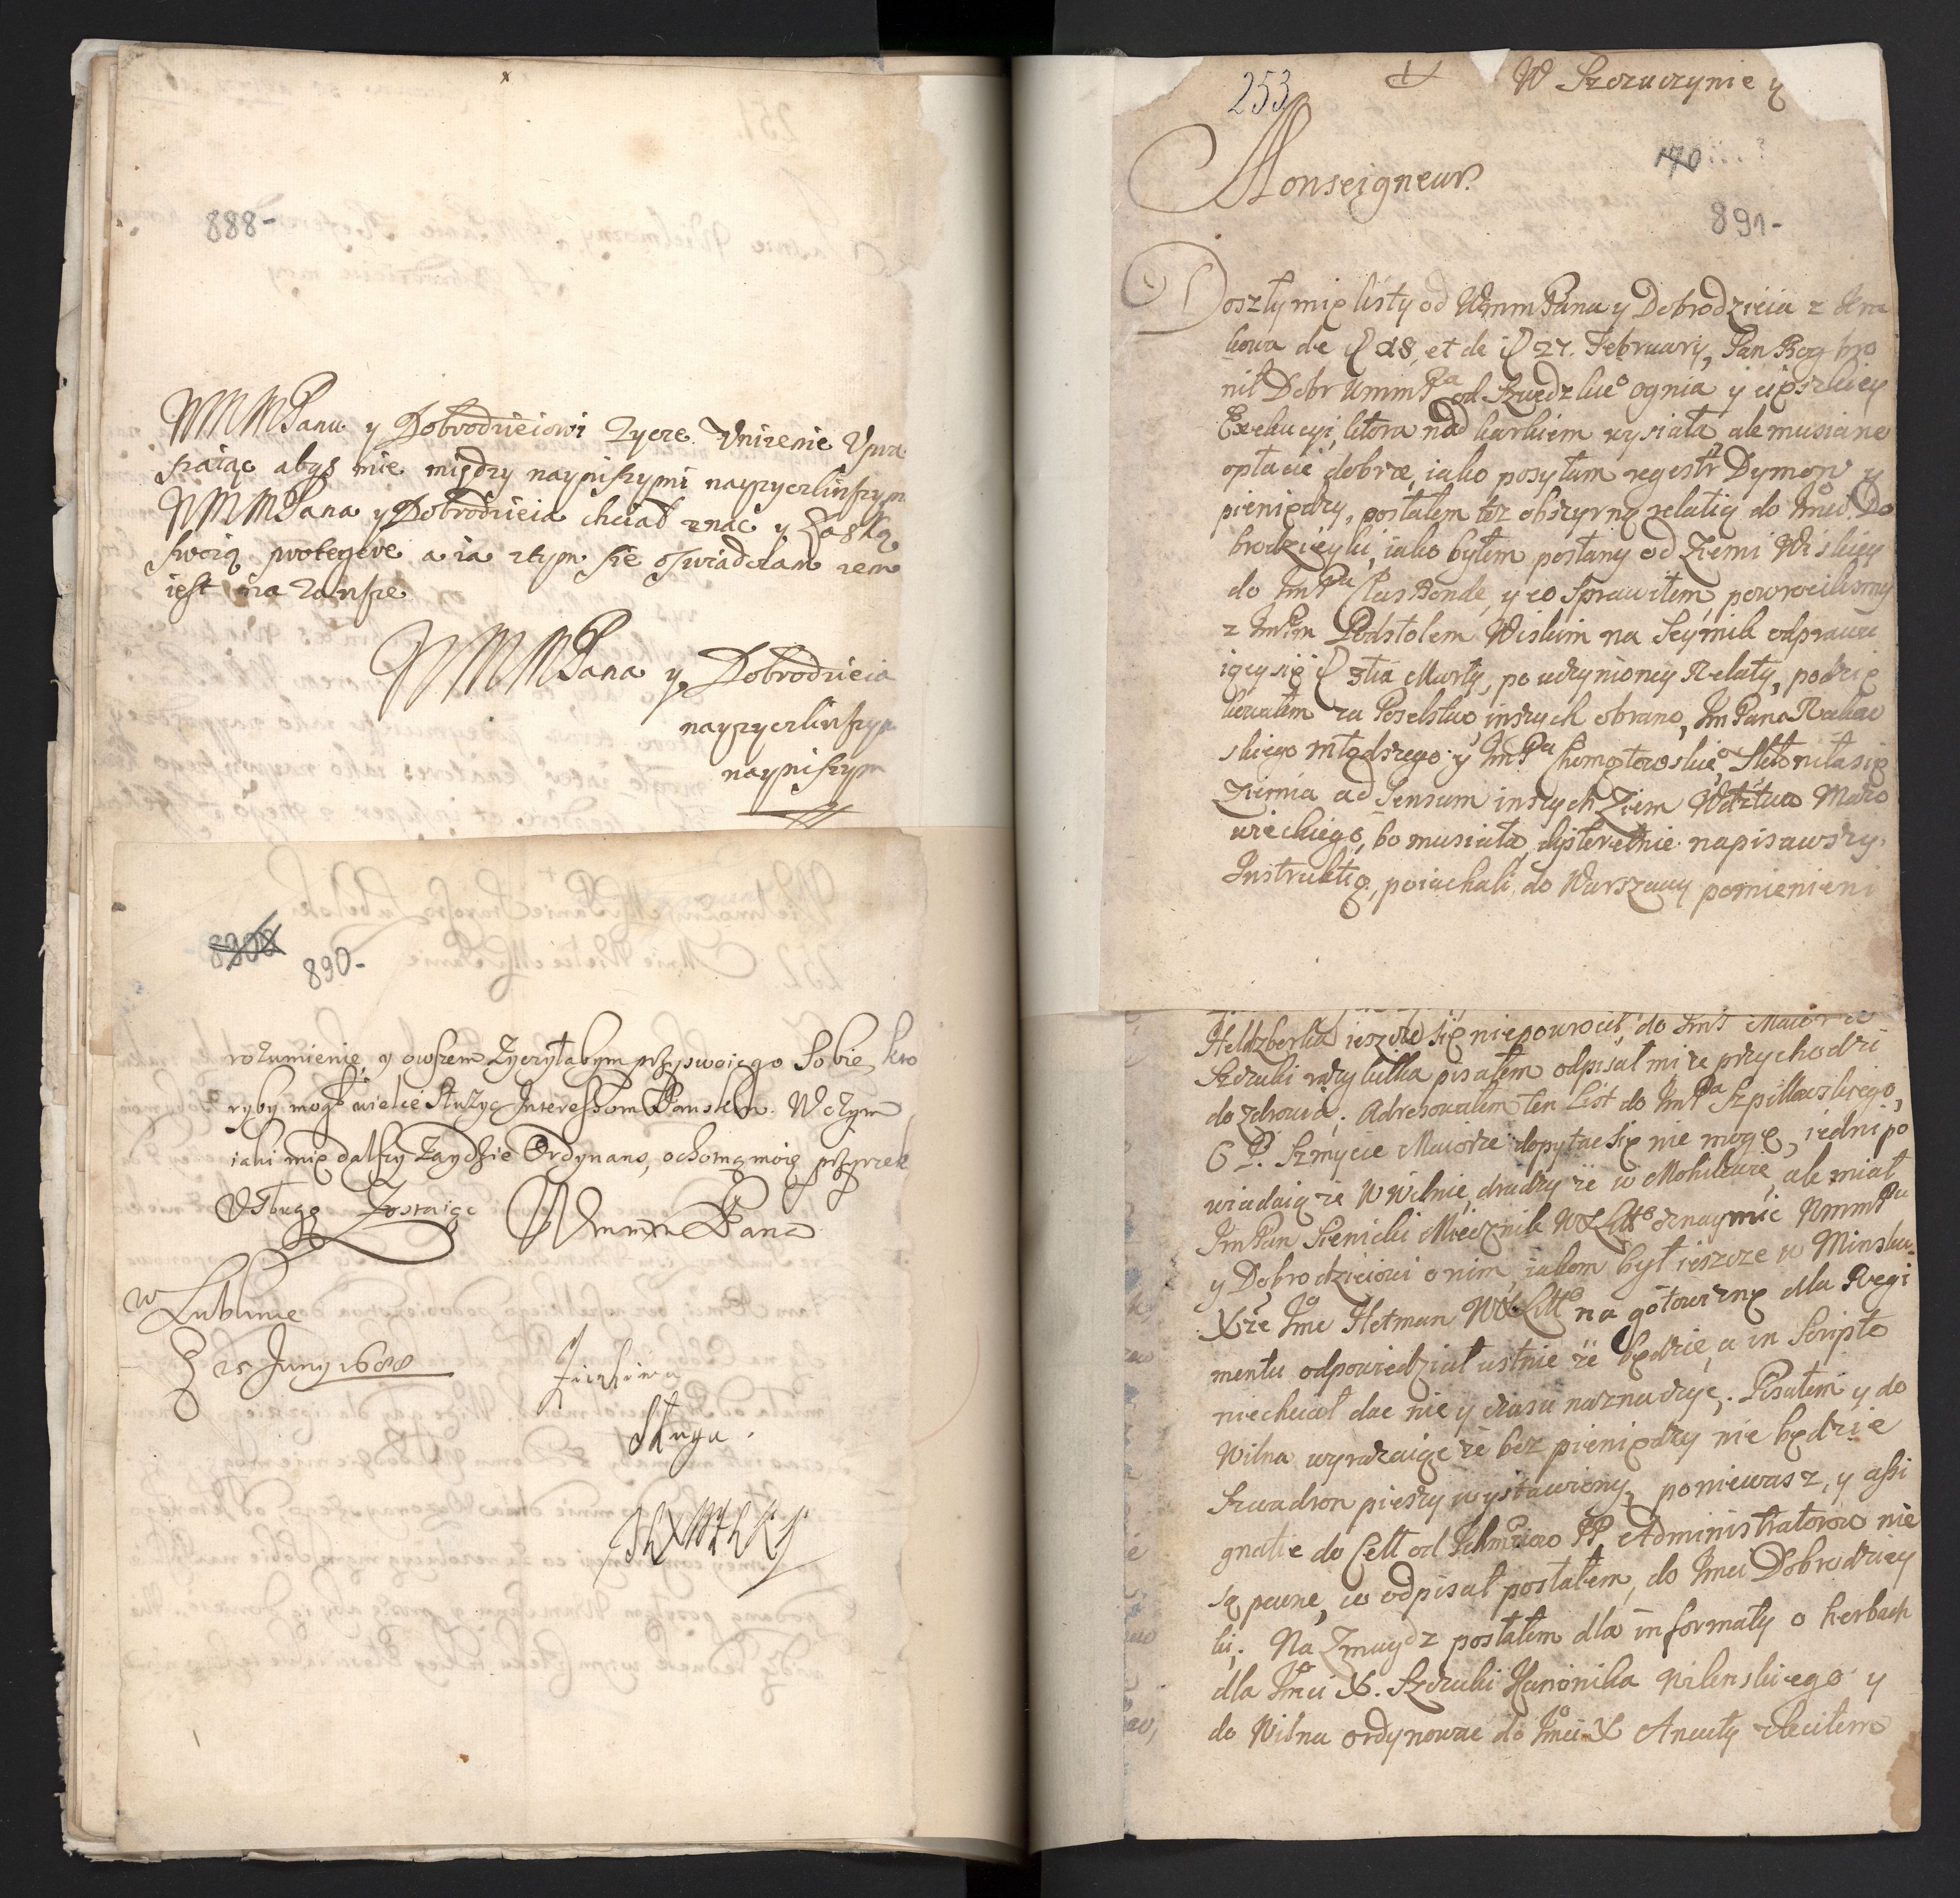 888-
WMMPanu y Dobrodzieiowi zycze Vnizenie Vpra
szaiąc abyś mie między nayniszzymi nayzyczliwszym
WMMPana y Dobrodzieia chciał znac y Łaską
swoią protegere a ia ztym sie oswiadczam zem
jest na zawsze
WMMPana y Dobrodzieia
nayzyczliwszym
nayniszym
890-
rozumienie, y owszem zyczyłabym przyswoiego Sobie, kto
ryby mogł wielce służyc Interessom Panskim. W czym
iaki mię dalszy zaydzie Ordynans, ochotą moię przyrzek
Usługę Zostaię Wmmm Pana
w Lublinie
25 Juny 1688
Sługa.
253
W Szczuczynie y
Monseigneur.
170
891-
Doszły mię listy od WmmPana y Dobrodzieia z Kra
kowa de 18, et de 27. February, Pan Bog bro
nił Dobr WmmPa od Szwedzkieo ognia y cięszkiey
Exekucyi, ktora nad karkiem wysiała, ale musiano
opłacić dobrze, iako posyłam regestr Dymow y
pieniędzy, posłałem też obszyrną relatią do Jmci Do
brodzieyki, iako byłem posłany od Ziemi Wiskiey
do JmPa Clas Bonde, y co sprawiłem, powrocilismy
z JmPm Podstolem Wiskim na Seymik odprawu
iący się 3tia Marty, po uczynioney Relaty, podzię
kowałem za Poselstwo, inszych obrano, JmPana Rakow
skiego młodszego y JmPa Chomętowskieo, Skłoniła się
Ziemia ad Sensum inszych Ziem Wdztwa Mazo
wieckiego, bo musiała, dyskretnie napisawszy
Instruktią, poiachali, do Warszawy pomienieni
Heltzberka ieszcze się niepowrocił, do Jmsci Maiora
Szczuki razy kilka pisałem odpisał mi ze przychodzi
do zdrowia; Adresowałem ten List do JmPa Szpilkowskiego,
O P. Szmycie Maiorze dopytac się nie mogę, iedni po
wiadaią ze w Wilnie, drudzy ze w Mohilowie, ale miał
JmPan Sienicki Miecznik WXLitto oznaymić WmmPu
y Dobrodzieiowi o nim, iakom był ieszcze w Minsku.
Xże Jmc Hetman WXLitto na gotowiznę dla Regi
mentu odpowiedział ustnie ze będzie, a in Scripto
niechciał dac nic y czasu naznaczyć. Pisałem y do
Wilna wyrazaiąc ze bez pieniędzy nie będzie
Szwadron pieszy wystawiony, poniewasz, y assi
gnatie do Cell od Ichmciow PP Administratorow nie
są pewne, co odpisał posłałem, do Jmci Dobrodziey
ki; Na Zmuydz posłałem dla informaty o herbach
dla Jmci X. Szczuki Kanonika Wilenskiego y
do Wilna ordynowac do Jmci X Ancuty zleciłem